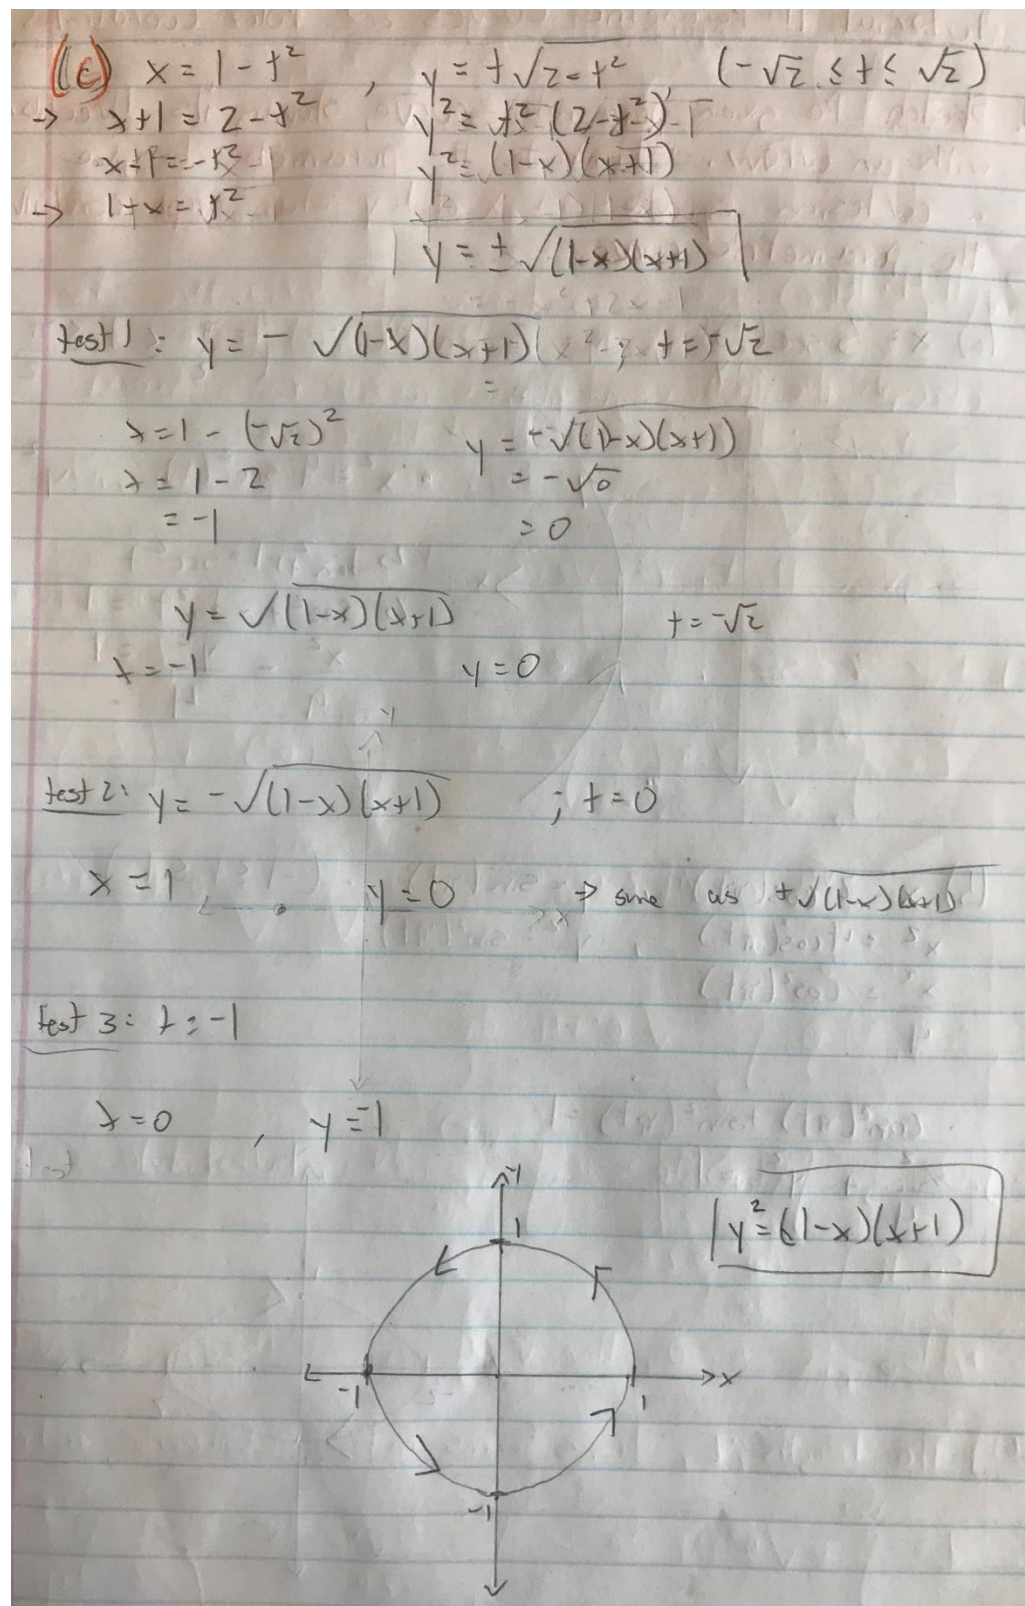 (c) x = 1 - t² , y = t√(2-t²) , (-√2 ≤ t ≤ √2)
→ x+1 = 2-t² y² = t² (2-t²)
y² = (1-x)(x+1)
→ 1-x = t²
y = ± √((1-x)(x+1))
test 1: y = - √((1-x)(x+1)) ; t = -√2
x = 1 - (-√2)² y = -√((1-x)(x+1))
x = 1 - 2 = -√0
= -1 = 0
y = √((1-x)(x+1)) t = -√2
x = -1 y = 0
test 2: y = -√((1-x)(x+1)) ; t = 0
x = 1, y = 0 → same as +√((1-x)(x+1))
test 3: t = -1
x = 0 , y = -1
y
1
y² = (1-x)(x+1)
-1 1 x
-1